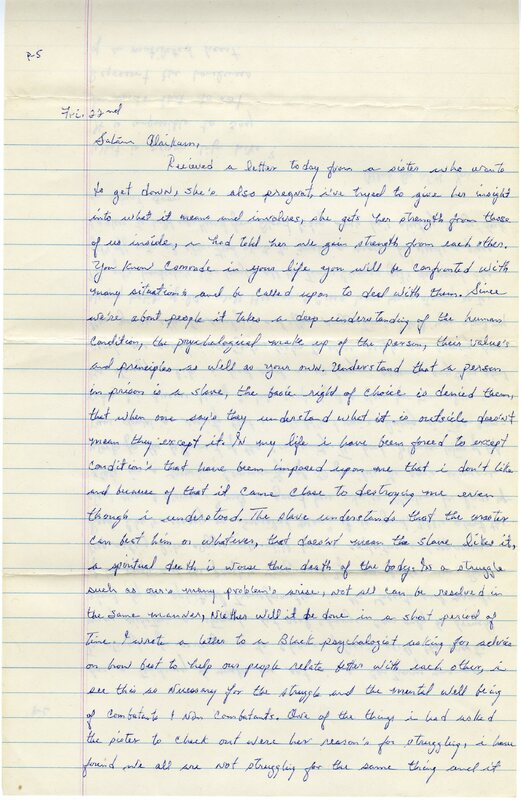 P-5
Fri. 22nd
Salaam Alaikum,
Recieved a letter today from a sister who wants
to get down, she's also pregnat, i've tryed to give her insight
into what it means and involves, she gets her strength from those
of us inside, i had told her we gain strength from each other.
You know Comrade in your life you will be confronted with
many situation's and be called upon to deal with them. Since
we're about people it takes a deep understanding of the human
Condition, the psychological make up of the person, their value's
and principles as well as your own. Understand that a person
in prison is a slave, the basic right of choice is denied them,
that when one say's they understand what it is outside doesn't
mean they except it. In my life i have been forced to except
Condition's that have been imposed upon me that i don't like
and because of that it came close to destroying me even
though i understood. The slave understands that the master
can beat him or whatever, that doesn't mean the slave likes it,
a spiritual death is worse then death of the body. In a struggle
such as our's many problem's arise, not all can be resolved in
the same manner, Niether will it be done in a short period of
Time. I wrote a letter to a Black psychologist asking for advice
on how best to help our people relate better with each other, i
see this so Necessary for the struggle and the mental well being
of combatants & non combatants. One of the things i had asked
the sister to check out were her reason's for struggling, i have
found we all are not struggling for the same thing and it